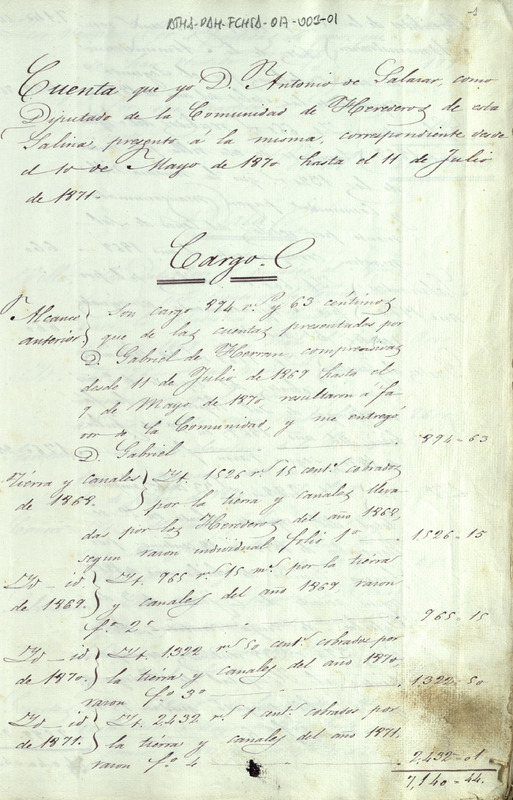 ATHA-DAH-FCHSA-017-003-01
1
Cuenta que yo D. Antonio de Salazar, como
Diputado de la Comunidad de Herederos de esta
Salina, presento a la misma, correspondiente desde
el 10 de Mayo de 1870 hasta el 11 de Julio
de 1871.
Cargo.
Alcance anterior } Son cargo 894 r.s y 63 centimos
que de las cuentas presentadas por
D. Gabriel de Herran, comprensivas
desde 11 de Julio de 1867 hasta el
9 de Mayo de 1870 resultaron á fa
vor de la Comunidad, y me entregó
D. Gabriel 894-63
Tierra y canales de 1868. } Yt. 1526 r.s 15 cent.s cobrados
por la tierra y canales lleva
das por los Herederos del año 1868,
segun razon individual folio 1º 1526-15
Yd id de 1869. } Yt. 965 r.s 15 m.s por la tierra
y canales del año 1869 razon
fº 2º 965-15
Yd id de 1870. } Yt. 1322 r.s 50 cent.s cobrados por
la tierra y canales del año 1870,
razon fº 3º 1322-50
Yd id de 1871. } Yt. 2432 r.s 1 cent.s cobrados por
la tierra y canales del año 1871.
razon fº 4 2,432-01
7,140-44.